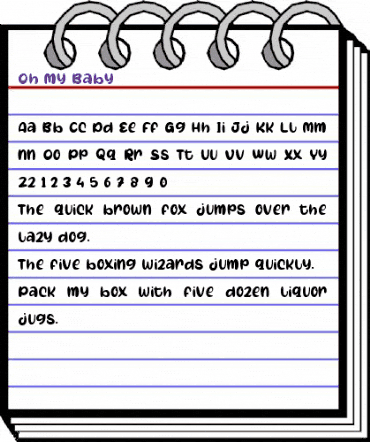 Oh My Baby
Aa Bb Cc Dd Ee Ff Gg Hh Ii Jj Kk Ll Mm
Nn Oo Pp Qq Rr Ss Tt Uu Vv Ww Xx Yy
Zz 1 2 3 4 5 6 7 8 9 0
The quick brown fox jumps over the
lazy dog.
The five boxing wizards jump quickly.
Pack my box with five dozen liquor
jugs.